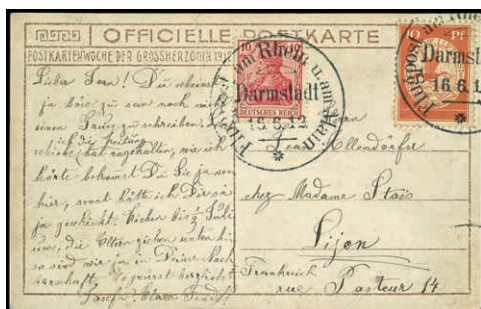 OFFICIELLE POSTKARTE
POSTKARTENWOCHE DER GROSSHERZOGIN 19
10 10
DEUTSCHES REICH
Flugpost am Rhein u. am Main
Darmstadt
16.6.12
10 Pf
Flugpost am Rhein
Darmst
16.6.1
Lieber Jean! Du scheinst
ja böse zu sein noch nie
einen zu schreiben!
ich die Zeitung
schicke hat angehalten, wie ich
hörte bekommst Du Sie ja von
hier, sonst hätte ich Dir sie
ja geschickt. Juli
um, die Eltern ziehen unten hin
so sind wir ja in Deiner Nach
barschaft. Es grüsst herzlichst
Jean Allendörfer
chez Madame Stais
Dijon
Frankreich
rue Pasteur 14